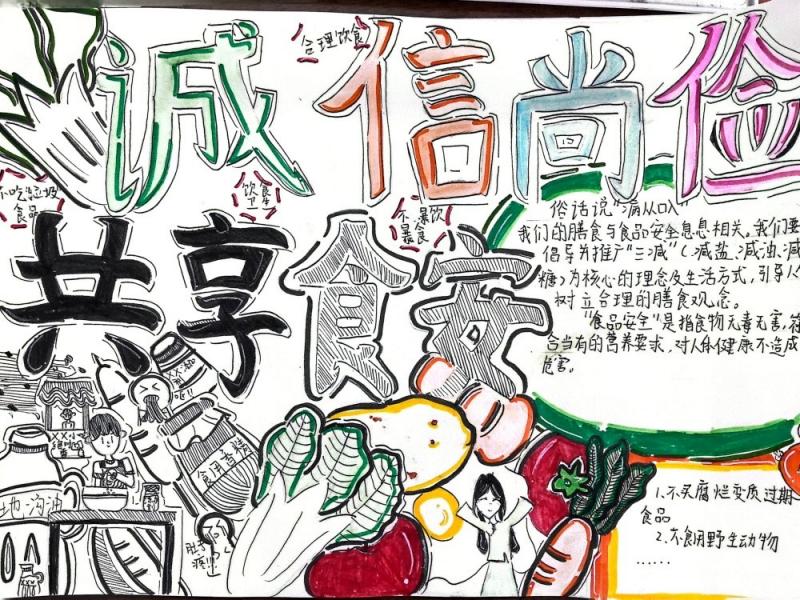 诚信尚俭
合理饮食
共享食安
不吃垃圾
食品
饮食
卫生
不暴饮
暴食
俗话说"病从口入"
我们的膳食与食品安全息息相关,我们要
倡导并推广"三减"(减盐、减油、减
糖)为核心的理念及生活方式,引导人
树立合理的膳食观念。
"食品安全"是指食物无毒无害,符
合当有的营养要求,对人体健康不造成
危害。
地沟油
肚子
疼
1.不买腐烂变质过期
食品
2.不食用野生动物
……